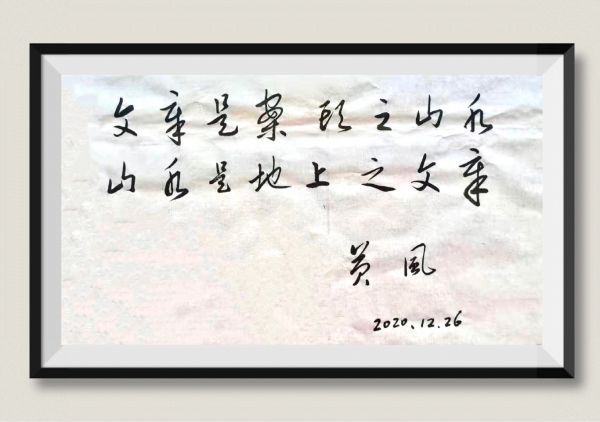 文章是案頭之山水
山水是地上之文章
黄風
2020.12.26